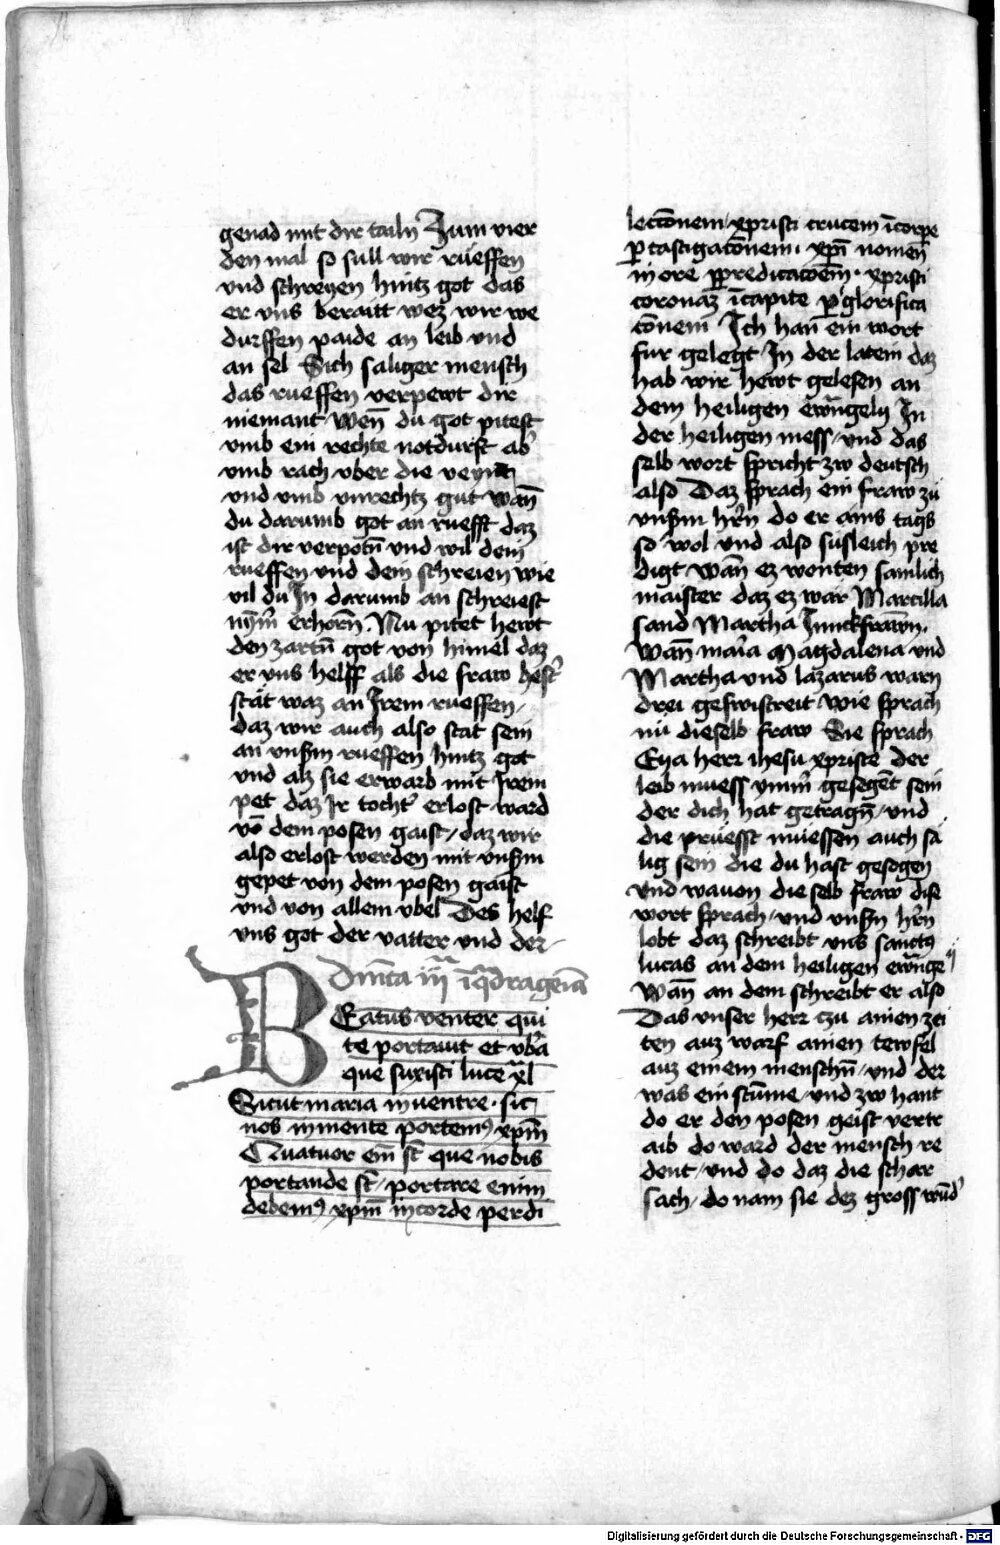 genad mit dir tailn Zum vier
den mal so sull wir rüeffen
vnd schreyen hintz got das
er vns beraitt wez wir we
durffen paide an leib vnd
an sel Sich saliger mensch
das rueffen verpewt dir
niemant Wen̄ du got pitest
vmb ein rechte notdurft ab̛
vmb rach vber die veynt
vnd vmb vnrechtz gut wan̄
du darumb got an ruefft daz
ist dir verpotn̄ vnd wil dein
rueffen vnd dein schreien wie
vil du In darumb an schreiest
erhorn̄. Nu pitet hewt
den zartn̄ got von himel daz
er vns helff als die fraw
stät waz an Irem rueffen /
daz wir auch also stät sein
an vnß̄m rueffen hintz got
vnd alz sie erwarb mit Irem
pet daz Ir tocht̛ erlost ward
vō dem posen gaist / daz wir
also erlost werden mit vnß̄m
gepet von dem posen gaist
vnd von allem vbel Des helf
vns got der vatter vnd der
Dn̄ica iij
BEatus venter qui
te portauit et vb̛a
que suxisti luce xj
Sicut maria in ventre · sic
nos in mente portem9 xpm̄
Quatuor em̄ st̄ que nobis
portande st̄ / portare enim
debem9 xpm̄ in corde per di
leccōnem / xpristi crucem ī corpe
p̄ castigacōnem · xp̄i nomen
in ore p̄ predicacōem · xpristi
coronaz ī capite p̄ glorifica
cōnem Ich han ein wort
fur gelegt In der latein daz
hab wir hewt gelesen an
dem heiligen ewāngely In
der heiligen mess / vnd das
selb wort spricht zw deutsch
also Daz sprach ein fraw zu
vnß̄m hr̄n do er ains tags
so wol vnd also susleich pre
digt wan̄ ez wonten samlich
maister daz ez wär Marcilla
sand Martha Junckfrawn̄.
Wan̄ mar̛ia Magdalena vnd
Martha vnd lazarus warn
drei geswistreit wie sprach
nu dieselb fraw Sie sprach
Eya herr ihesu xpriste der
leib muess ymm̛ gesegēt sein
der dich hat getragn̄ / vnd
die prüesst müessen auch sä
lig sein die du hast gesogen
Vnd wauon die selb fraw dise
wort sprach / vnd vnß̄n hr̄n
lobt daz schreibt vns sanctus
lucas an dem heiligen ewānge
Wan̄ an dem schreibt er also
Das vnser herr czu ainen zei
ten auz warf ainen tewfel
auz einem menschn̄ / vnd der
was ein stūme / vnd zw hant
do er den posen geist vertr
aib do ward der mensch re
dent / vnd do daz die schar
sach / do nam sie dez gross wūd̛
Digitalisierung gefördert durch die Deutsche Forschungsgemeinschaft - DFG